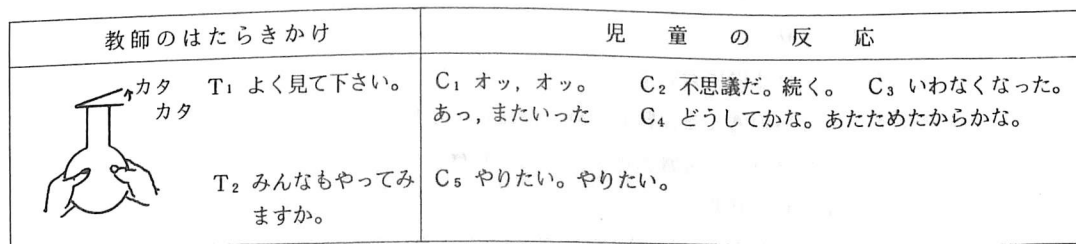 教師のはたらきかけ
児童の反応
カタ
カタ
T₁ よく見て下さい。
C₁ オッ, オッ。
あっ, またいった
C₂ 不思議だ。続く。
C₃ いわなくなった。
C₄ どうしてかな。あたためたからかな。
T₂ みんなもやってみ
ますか。
C₅ やりたい。やりたい。